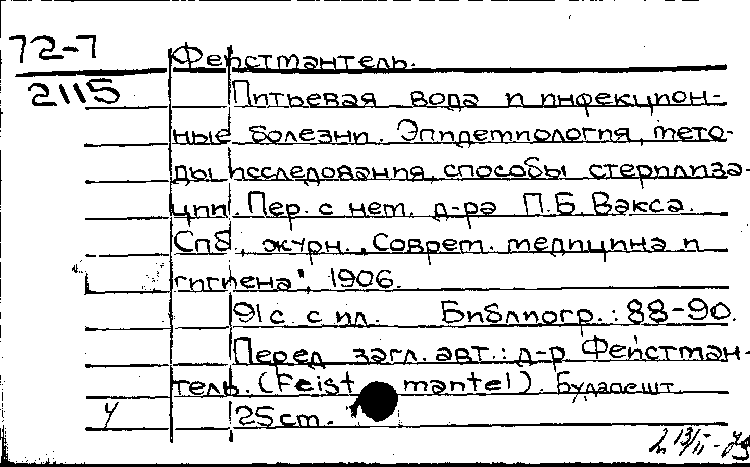 72-7
2115
Фейстмантель.
Питьевая вода и инфекцион-
ные болезни. Эпидемиология, мето-
ды исследования, способы стерилиза-
ции. Пер. с нем. д-ра П.Б. Вакса.
Спб., журн. „Соврем. медицина и
гигиена", 1906.
91 с. с ил. Библиогр.: 88-90.
Перед загл. авт.: д-р Фейстман-
тель. (Feistmantel). Будапешт.
25 cm.